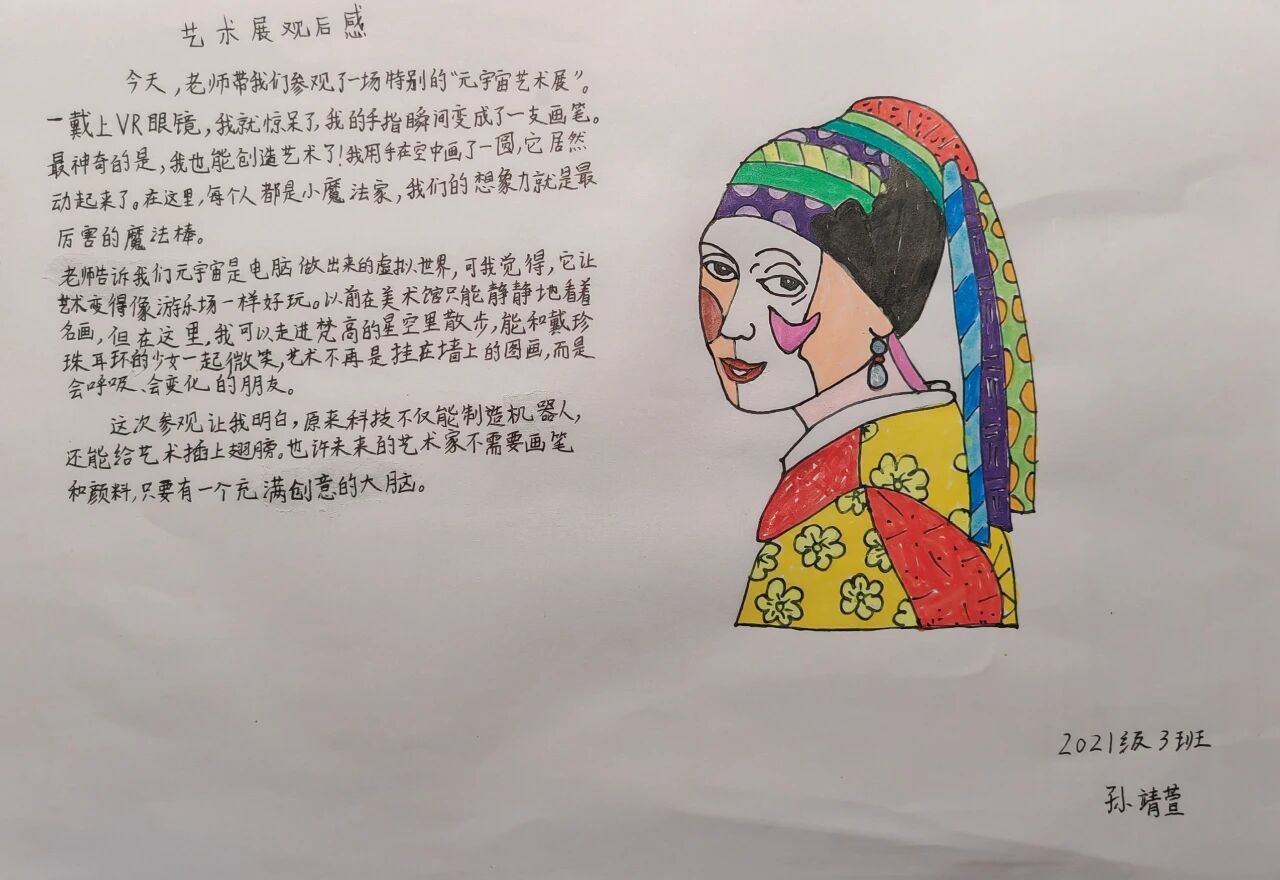 艺术展观后感
今天,老师带我们参观了一场特别的“元宇宙艺术展”。
一戴上VR眼镜,我就惊呆了,我的手指瞬间变成了一支画笔。
最神奇的是,我也能创造艺术了!我用手在空中画了一圆,它居然
动起来了。在这里,每个人都是小魔法家,我们的想象力就是最
厉害的魔法棒。
老师告诉我们元宇宙是电脑做出来的虚拟世界,可我觉得,它让
艺术变得像游乐场一样好玩。以前在美术馆只能静静地看着
名画,但在这里,我可以走进梵高的星空里散步,能和戴珍
珠耳环的少女一起微笑,艺术不再是挂在墙上的图画,而是
会呼吸、会变化的朋友。
这次参观让我明白,原来科技不仅能制造机器人,
还能给艺术插上翅膀。也许未来的艺术家不需要画笔
和颜料,只要有一个充满创意的大脑。
2021级3班
孙靖萱